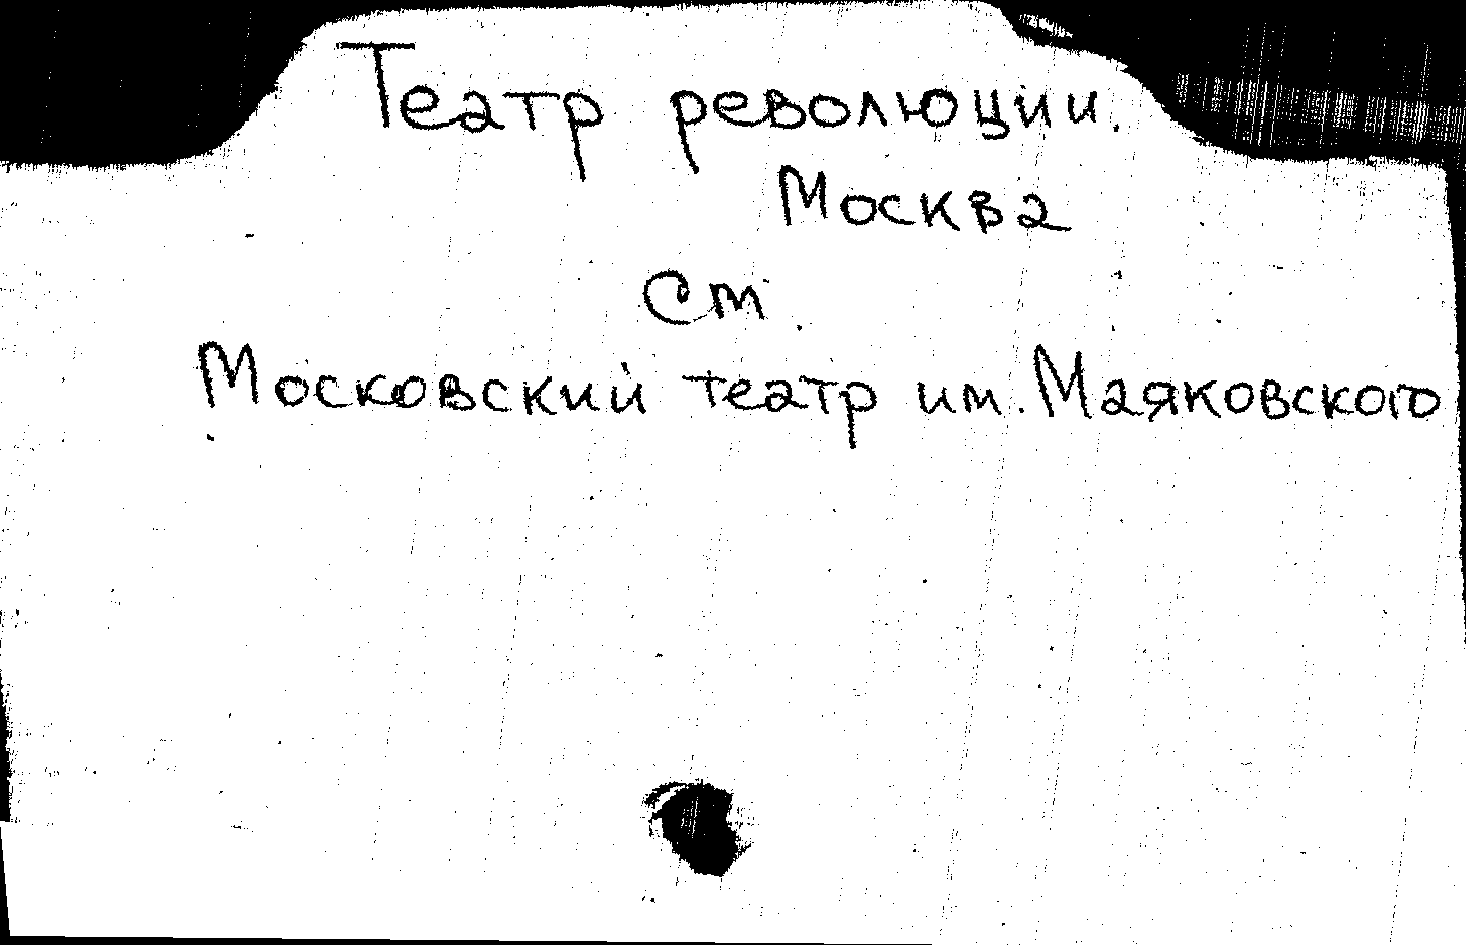 Театр революции.
Москва
Ст.
Московский театр им. Маяковского